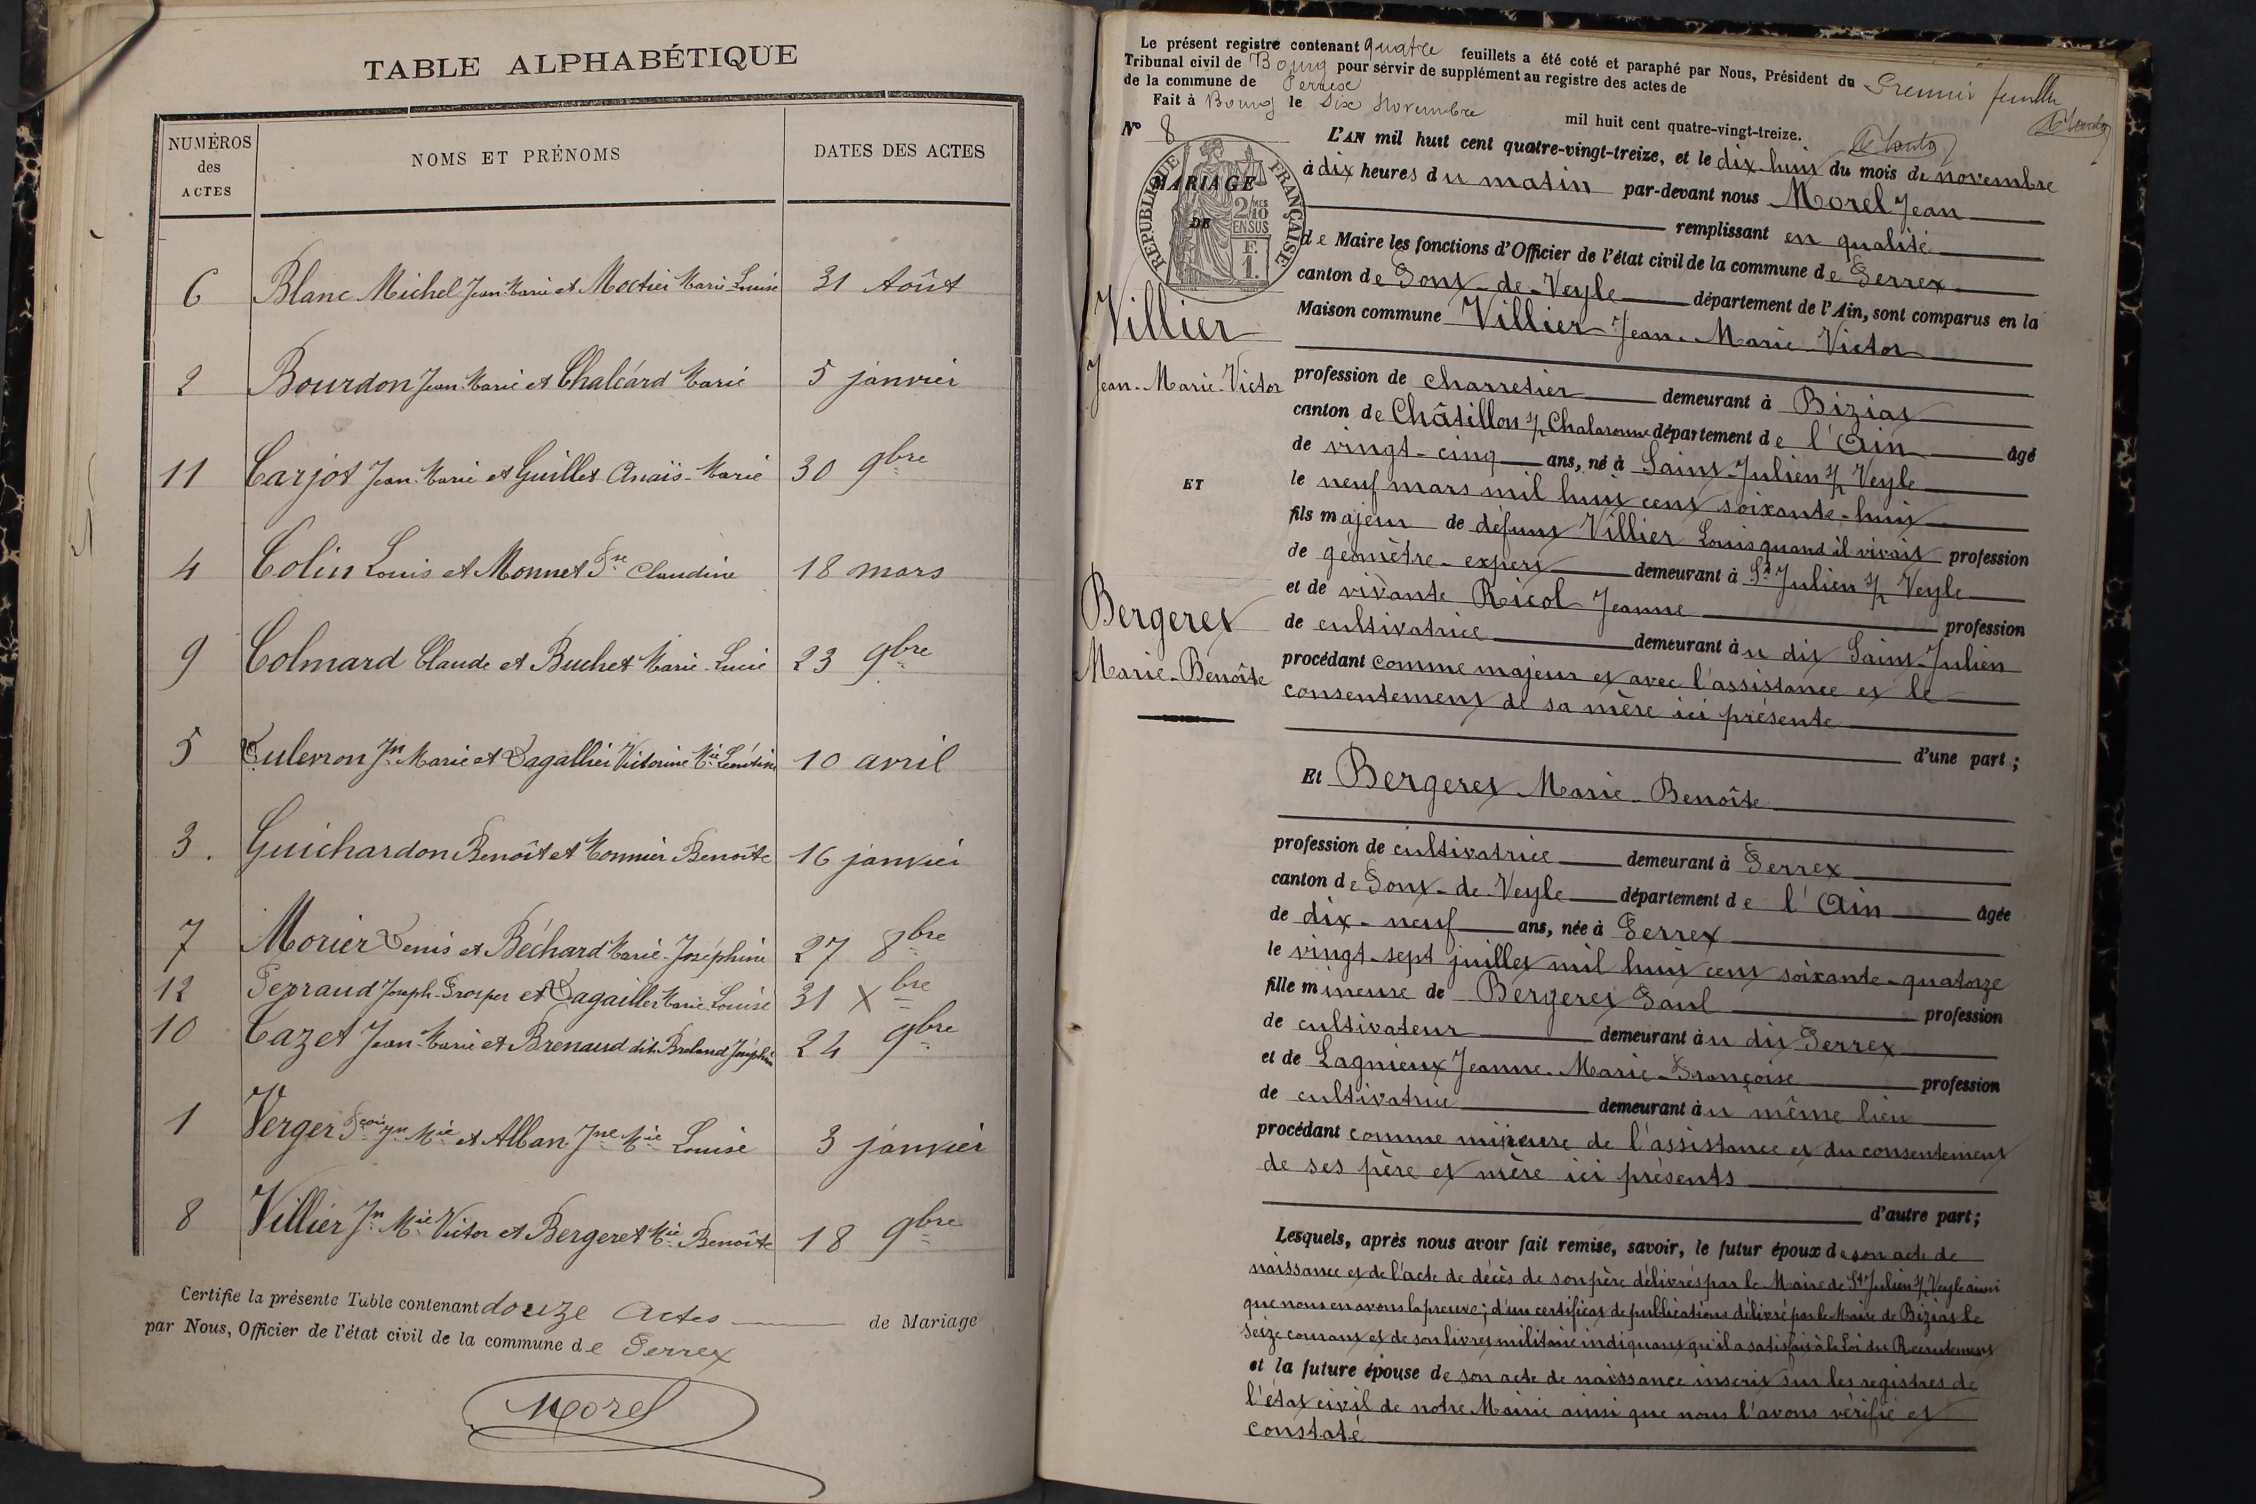 TABLE ALPHABÉTIQUE
NUMÉROS des ACTES
NOMS ET PRÉNOMS
DATES DES ACTES
6 Blanc Michel Jean-Marie et Moctier Marie-Louise 31 Août
2 Bourdon Jean-Marie et Chalcard Marie 5 janvier
11 Carjot Jean-Marie et Guillet Anaïs-Marie 30 9bre
4 Colin Louis et Monnet Claudine 18 mars
9 Colmard Claude et Buchet Marie-Lucie 23 9bre
5 Jn Marie et Dagallier Victorine Mie Léontine 10 avril
3. Guichardon Benoît et Monnier Benoîte 16 janvier
7 Morier Denis et Béchard Marie-Joséphine 27 8bre
12 Perraud Joseph-Prosper et Dagaillier Marie-Louise 31 Xbre
10 Cazet Jean-Marie et Brenaud dit Breland Joséphine 24 9bre
1 Verger Jn Mie et Alban Jne Mie Louise 3 janvier
8 Villier Jn Mie Victor et Bergeret Mie Benoîte 18 9bre
Certifie la présente Table contenant douze actes de Mariage
par Nous, Officier de l'état civil de la commune de Perrex
Morel
Le présent registre contenant quatre feuillets a été coté et paraphé par Nous, Président du
Tribunal civil de Bourg pour servir de supplément au registre des actes de
de la commune de Perrex
Fait à Bourg le Dix Novembre mil huit cent quatre-vingt-treize.
Premier feuillet
No 8
MARIAGE
DE
RÉPUBLIQUE FRANÇAISE
2/10 MES
EN SUS
F.
1.
Villier
Jean-Marie-Victor
ET
Bergeret
Marie-Benoîte
L'AN mil huit cent quatre-vingt-treize, et le dix-huit du mois de novembre
à dix heures du matin par-devant nous Morel Jean
remplissant en qualité
de Maire les fonctions d'Officier de l'état civil de la commune de Perrex
canton de Pont-de-Veyle département de l'Ain, sont comparus en la
Maison commune Villier Jean-Marie-Victor
profession de charretier demeurant à Biziat
canton de Châtillon s/ Chalaronne département de l'Ain âgé
de vingt-cinq ans, né à Saint-Julien s/ Veyle
le neuf mars mil huit cent soixante-huit
fils majeur de défunt Villier Louis quand il vivait profession
de géomètre-expert demeurant à St Julien s/ Veyle
et de vivante Ricol Jeanne profession
de cultivatrice demeurant au dit Saint-Julien
procédant comme majeur et avec l'assistance et le
consentement de sa mère ici présente
d'une part;
Et Bergeret Marie-Benoîte
profession de cultivatrice demeurant à Perrex
canton de Pont-de-Veyle département de l'Ain âgée
de dix-neuf ans, née à Perrex
le vingt-sept juillet mil huit cent soixante-quatorze
fille mineure de Bergeret Paul profession
de cultivateur demeurant au dit Perrex
et de Lagnieux Jeanne-Marie-Françoise profession
de cultivatrice demeurant au même lieu
procédant comme mineure de l'assistance et du consentement
de ses père et mère ici présents
d'autre part;
Lesquels, après nous avoir fait remise, savoir, le futur époux de son acte de
naissance et de l'acte de décès de son père délivrés par le Maire de St Julien s/ Veyle ainsi
que nous en avons la preuve; d'un certificat de publications délivré par le Maire de Biziat le
seize courant et de son livret militaire indiquant qu'il a satisfait à la Loi du Recrutement
et la future épouse de son acte de naissance inscrit sur les registres de
l'état civil de notre Mairie ainsi que nous l'avons vérifié et
constaté